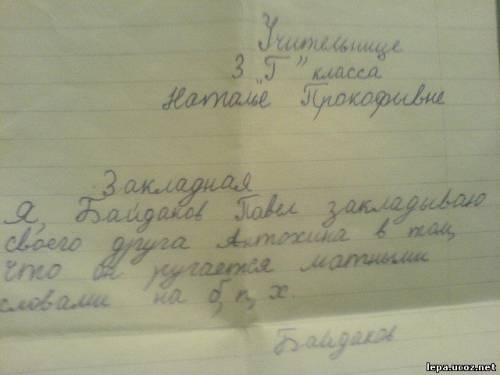 Учительнице
3 "Г" класса
Наталье Прокофивне
Закладная
Я, Байдаков Павел закладываю
своего друга Антохина в том,
что он ругается матными
словами на б, п, х.
Байдаков
lepa.ucoz.net